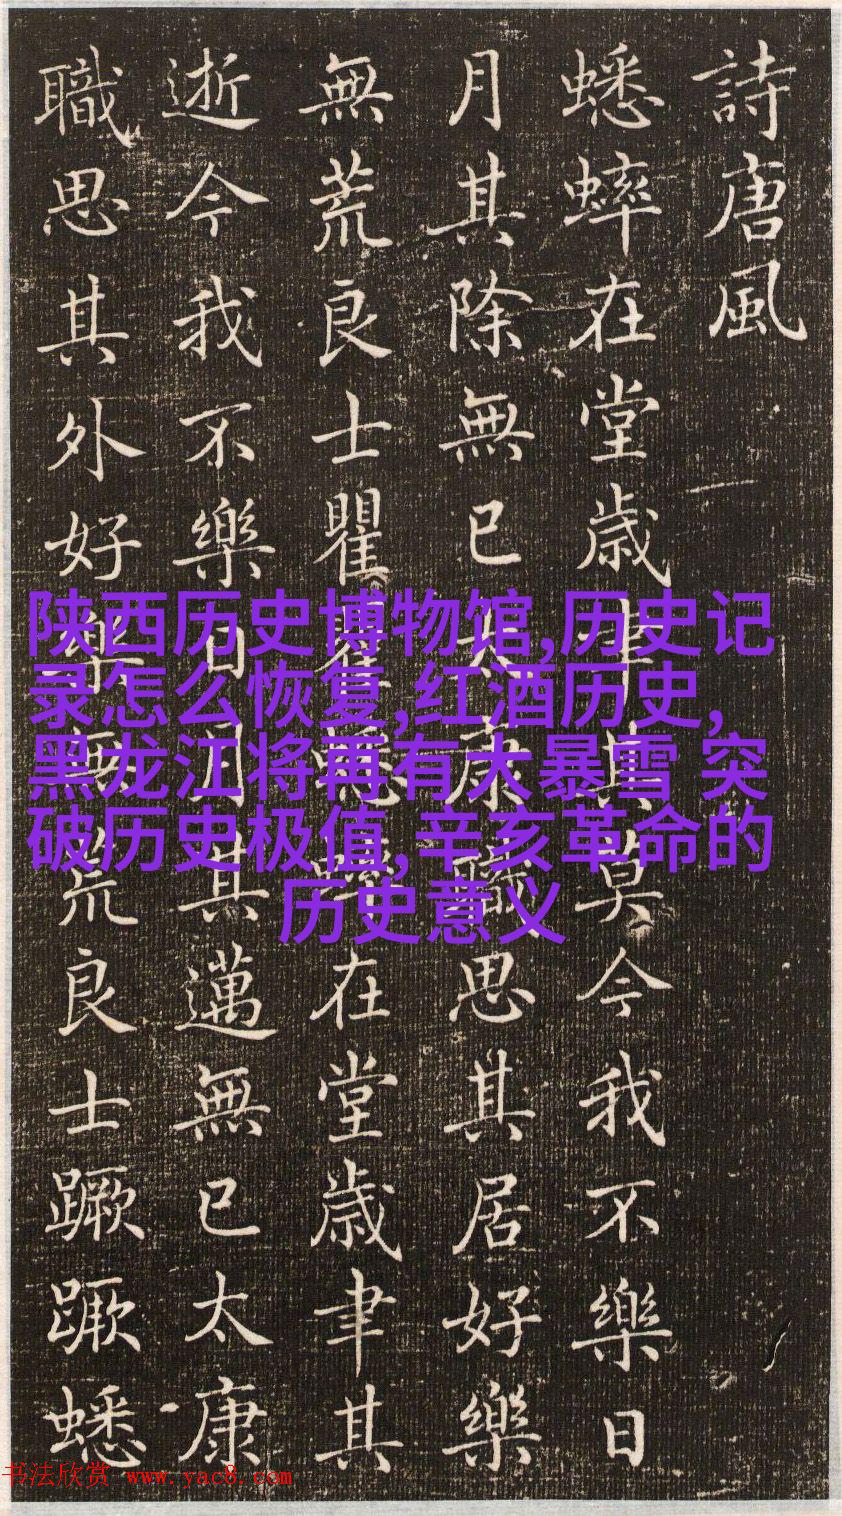 詩唐風
蟋蟀在堂歳聿其莫今我不樂日
月其除無已太康職思其居好樂
無荒良士瞿瞿蟋蟀在堂歳聿其
逝今我不樂日月其邁無已太康
職思其外好樂無荒良士蹶蹶蟋
陕西历史博物馆,历史记
录怎么恢复,红酒历史,
黑龙江将再有大暴雪 突
破历史极值,辛亥革命的
历史意义
书法欣赏 www.yac8.com